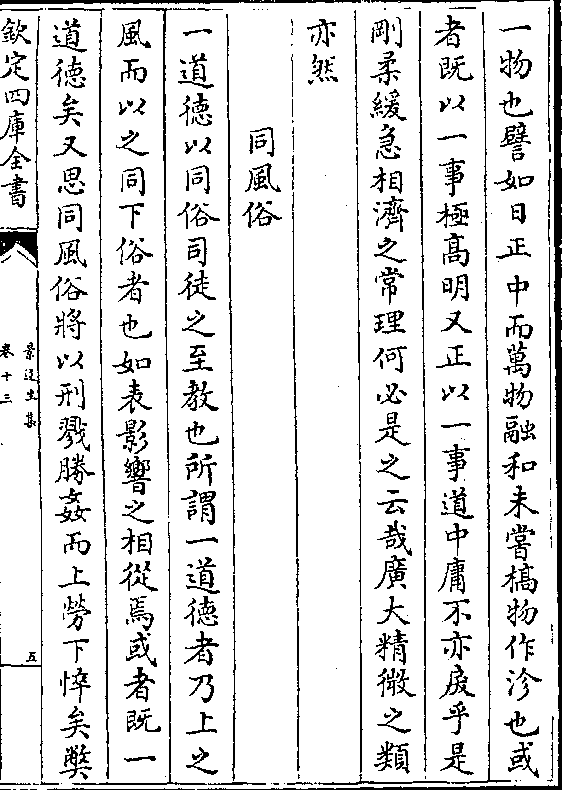 一物也譬如日正中而萬物融和未嘗槁物作沴也或
者既以一事極高明又正以一事道中庸不亦戾乎是
剛柔緩急相濟之常理何必是之云哉廣大精微之類
亦然
同風俗
一道德以同俗司徒之至教也所謂一道德者乃上之
風而以之同下俗者也如表影響之相從焉或者既一
道德矣又思同風俗將以刑戮勝姦而上勞下悴矣弊
欽定四庫全書
景迂生集
卷十三
五